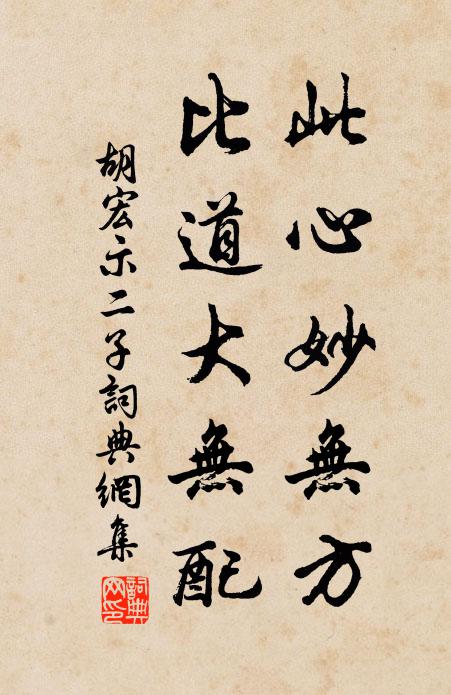 此心妙無方
比道大無配
胡宏示二子詞典網集
詞典網印